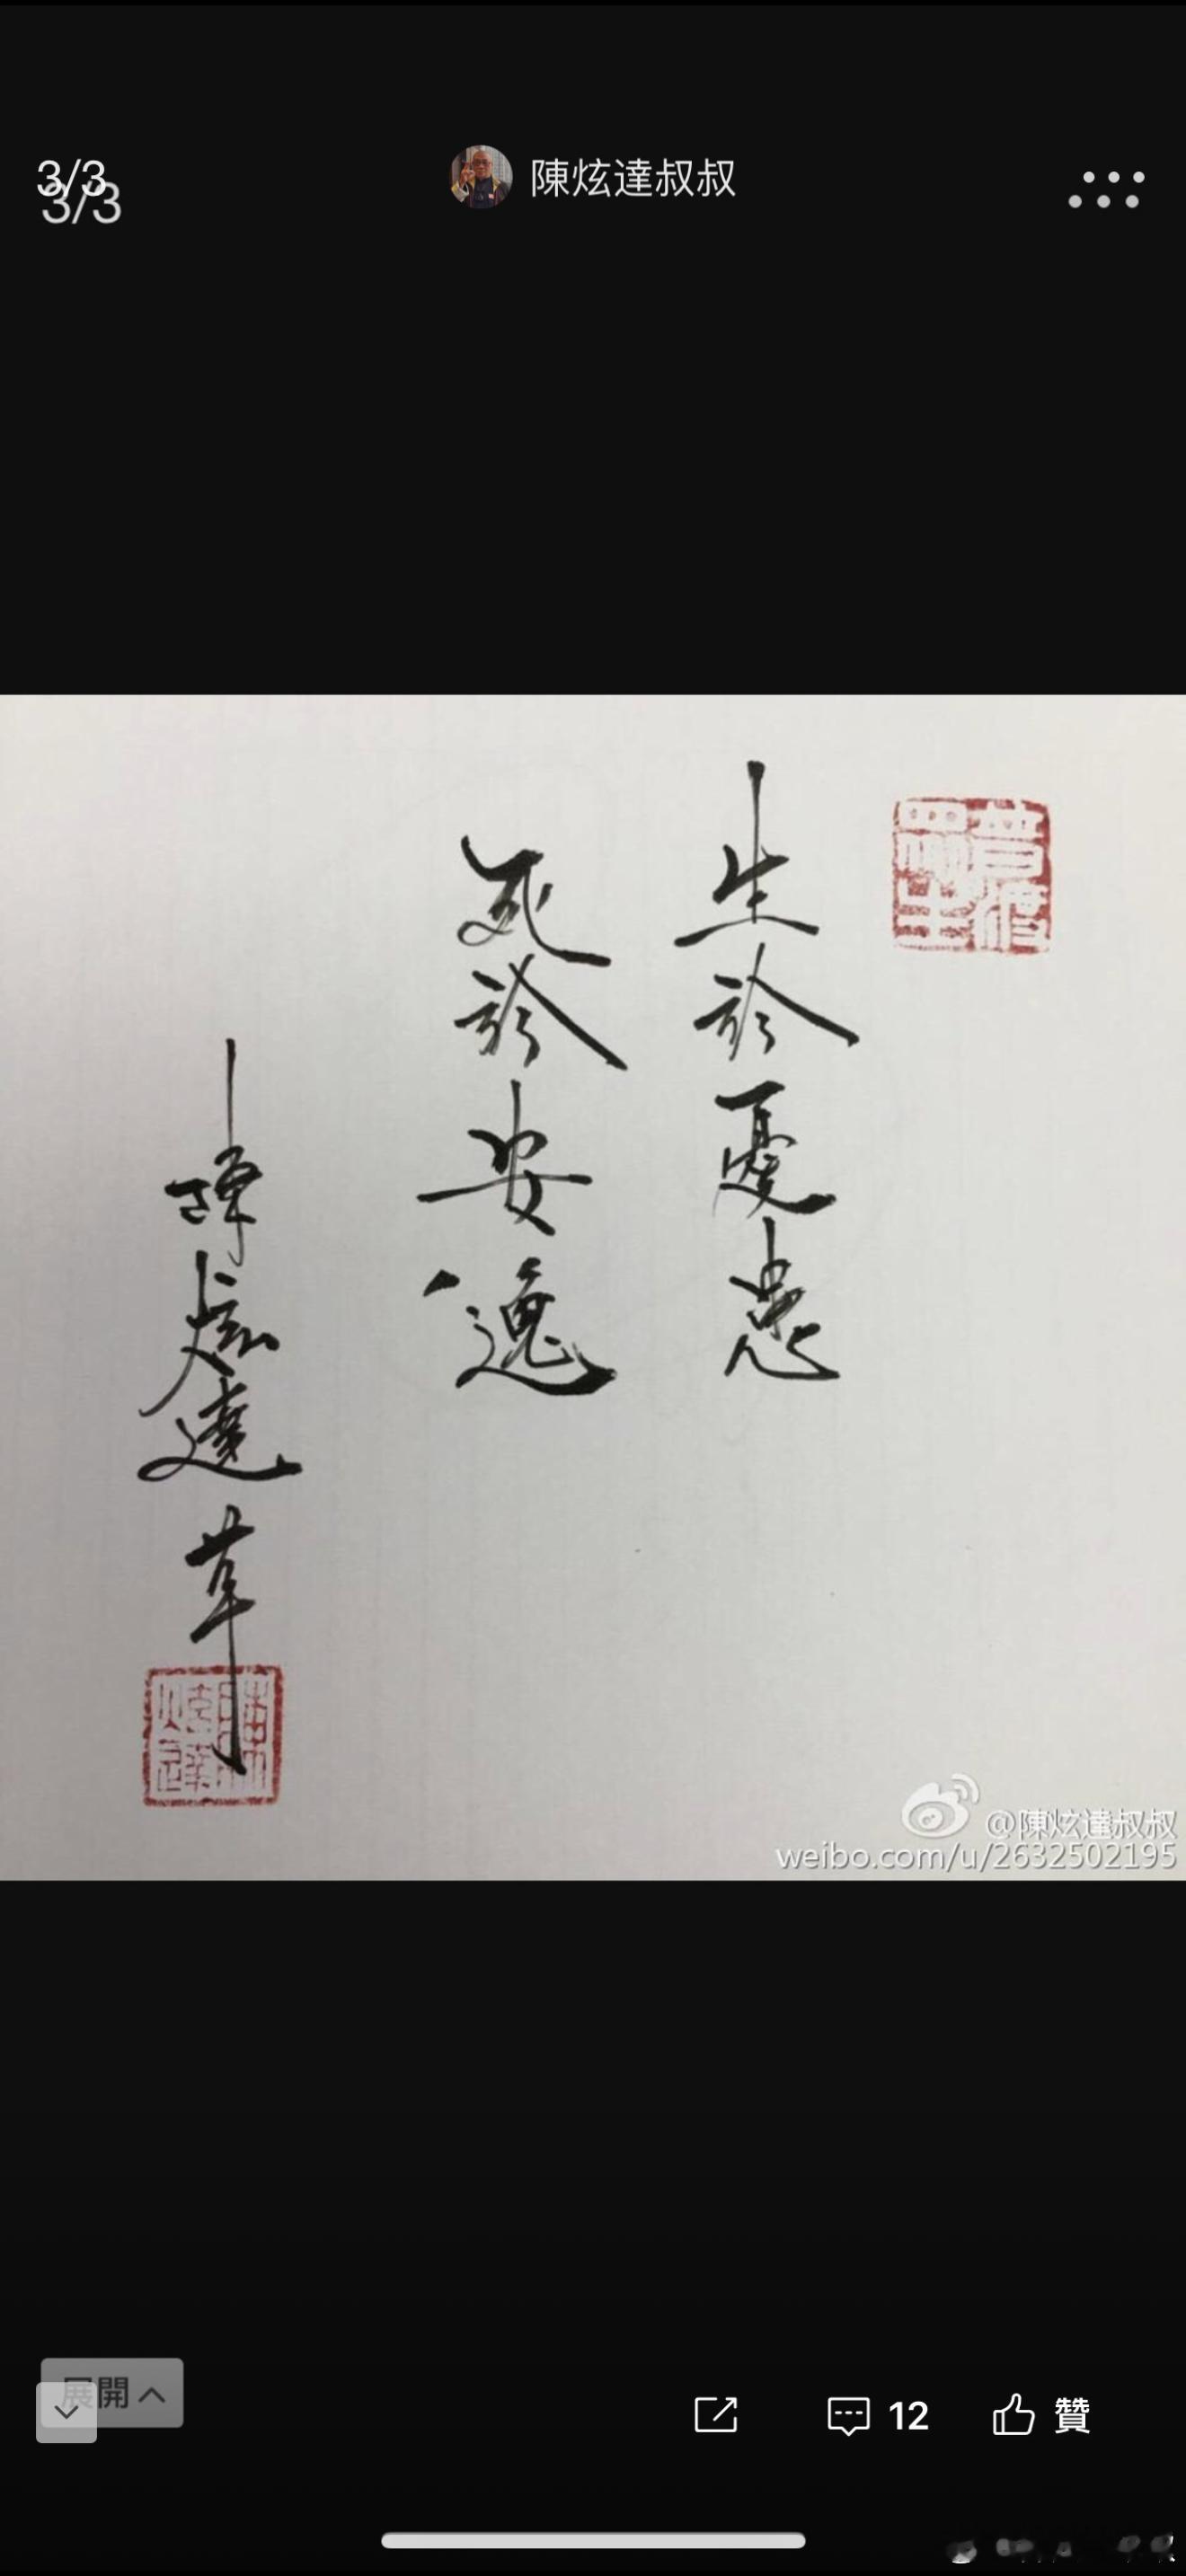 3/3
3/3
陳炫達叔叔
生於憂患
死於安逸
陳炫達草
陳炫達
@陳炫達叔叔
weibo.com/u/2632502195
展開
12
贊